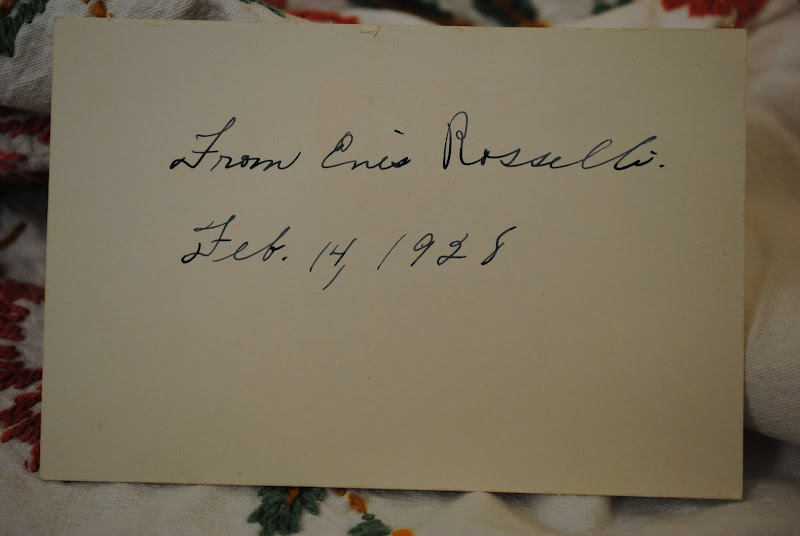 From Enis Rosselli.
Feb. 14, 1928